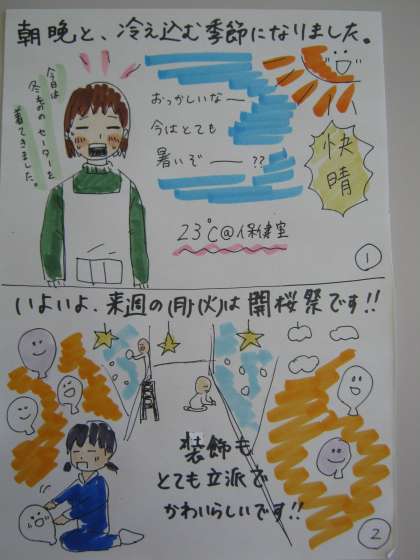 朝晩と、冷え込む季節になりました。
今日は
冬あのセーターを
着てきました。
おっかしいなー
今はとても
暑いぞー??
快晴
23℃@保健室
1
いよいよ、来週の(月)(火)は開桜祭です!!
装飾も
とても立派で
かわいらしいです!!
2